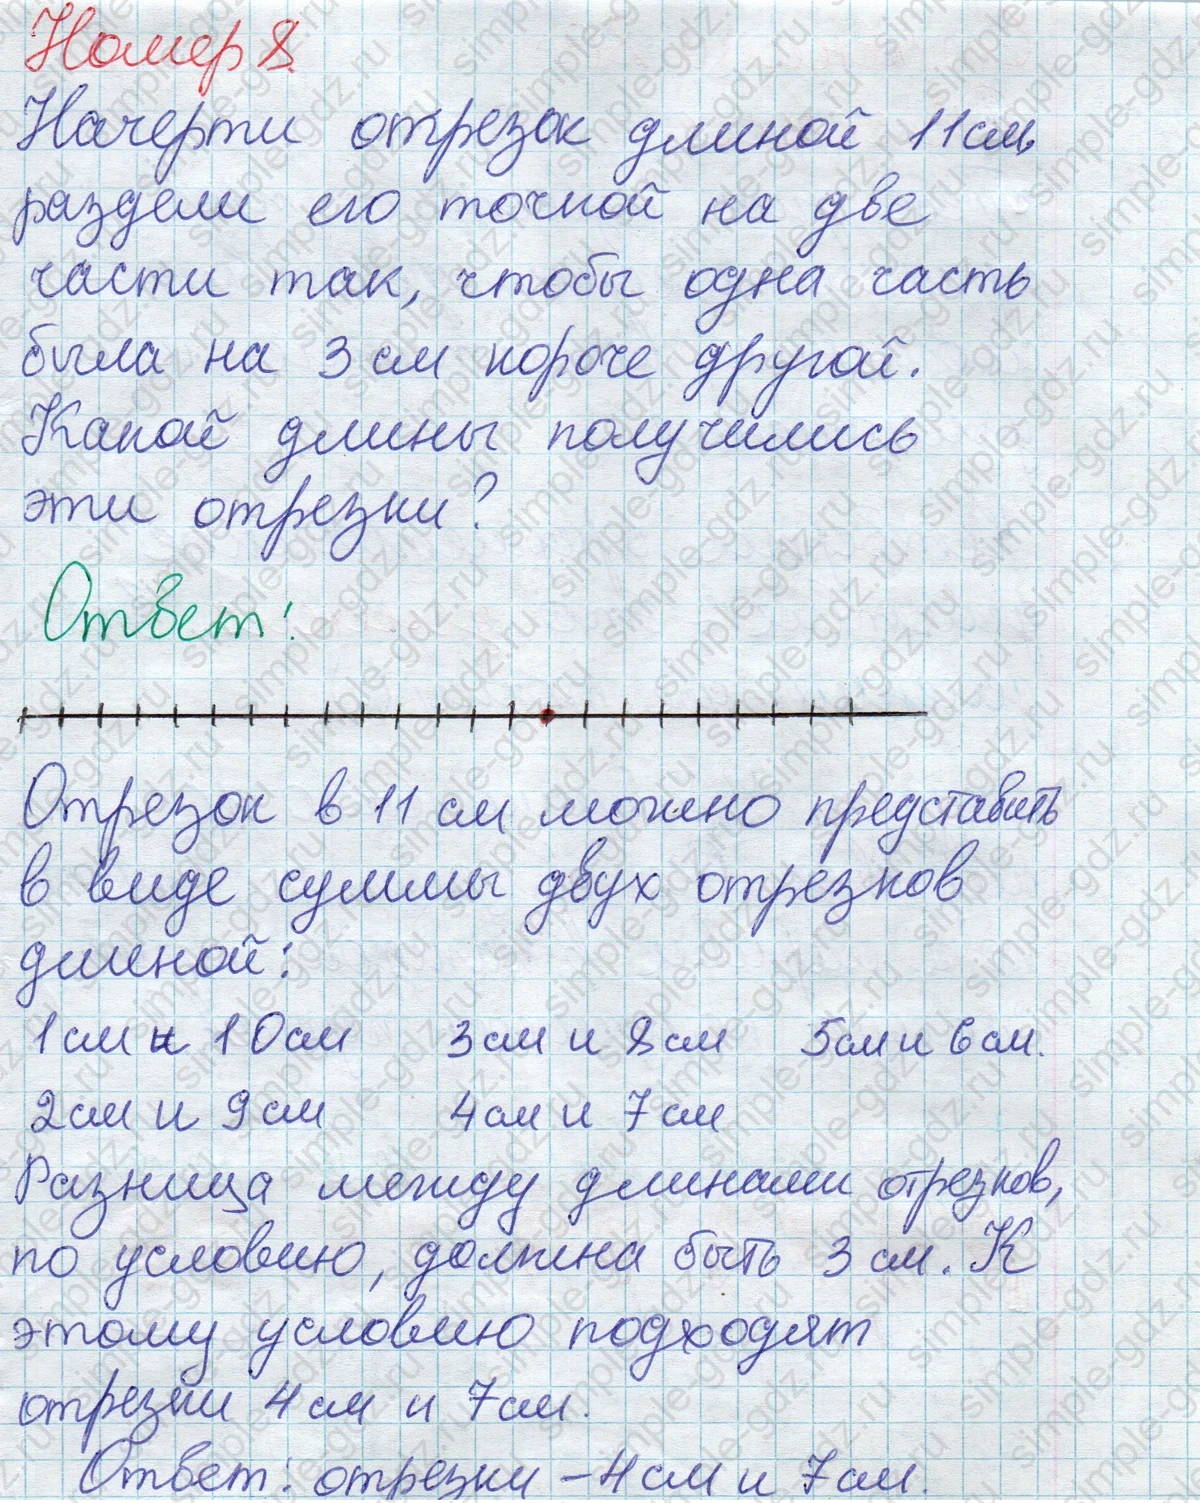 Номер 8.
Начерти отрезок длиной 11см,
раздели его точкой на две
части так, чтобы одна часть
была на 3 см короче другой.
Какой длины получились
эти отрезки?
Ответ:
Отрезок в 11 см можно представить
в виде суммы двух отрезков
длиной:
1см и 10см 3см и 8см 5см и 6см.
2см и 9см 4см и 7см
Разница между длинами отрезков,
по условию, должна быть 3 см. К
этому условию подходят
отрезки 4см и 7см.
Ответ: отрезки – 4см и 7см.
simple-gdz.ru